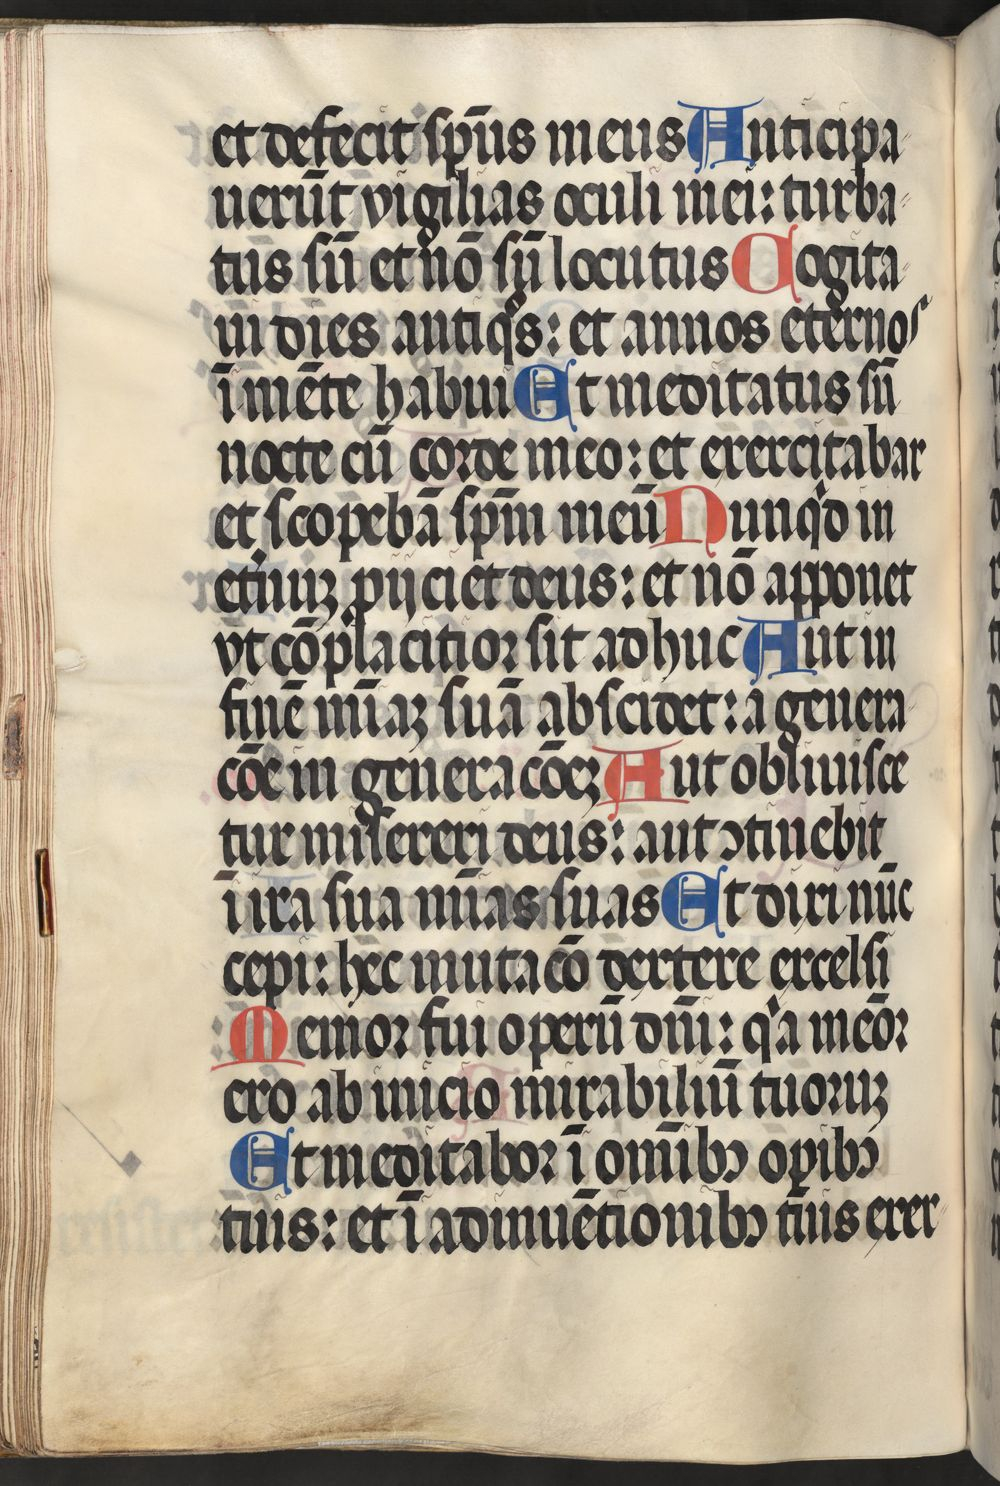 et defecit sp̄us meus Anticipa
uerūt vigilias oculi mei: turba
tus sū et nō sū locutus Cogita
ui dies antiqͦs: et annos eternos
ī mēte habui Et meditatus sū
nocte cū corde meo: et exercitabar
et scopebā sp̄m meū Nunqͥd in
etnuꝫ ꝓijciet deus: et nō apponet
vt cōplacitior sit adhuc Aut in
finē mīaꝫ suā abscidet: a genera
cōe in generacōeꝫ Aut obliuisce
tur misereri deus: aut ꝯtinebit
ī ira sua mīas suas Et dixi nūc
cepi: hec mutacō dextere excelsi
Memor fui operū dn̄i: qͥa meōr
ero ab inicio mirabiliū tuoruꝫ
Et meditabor ī omībꝰ oꝑibꝰ
tuis: et ī adinuētionibꝰ tuis exer